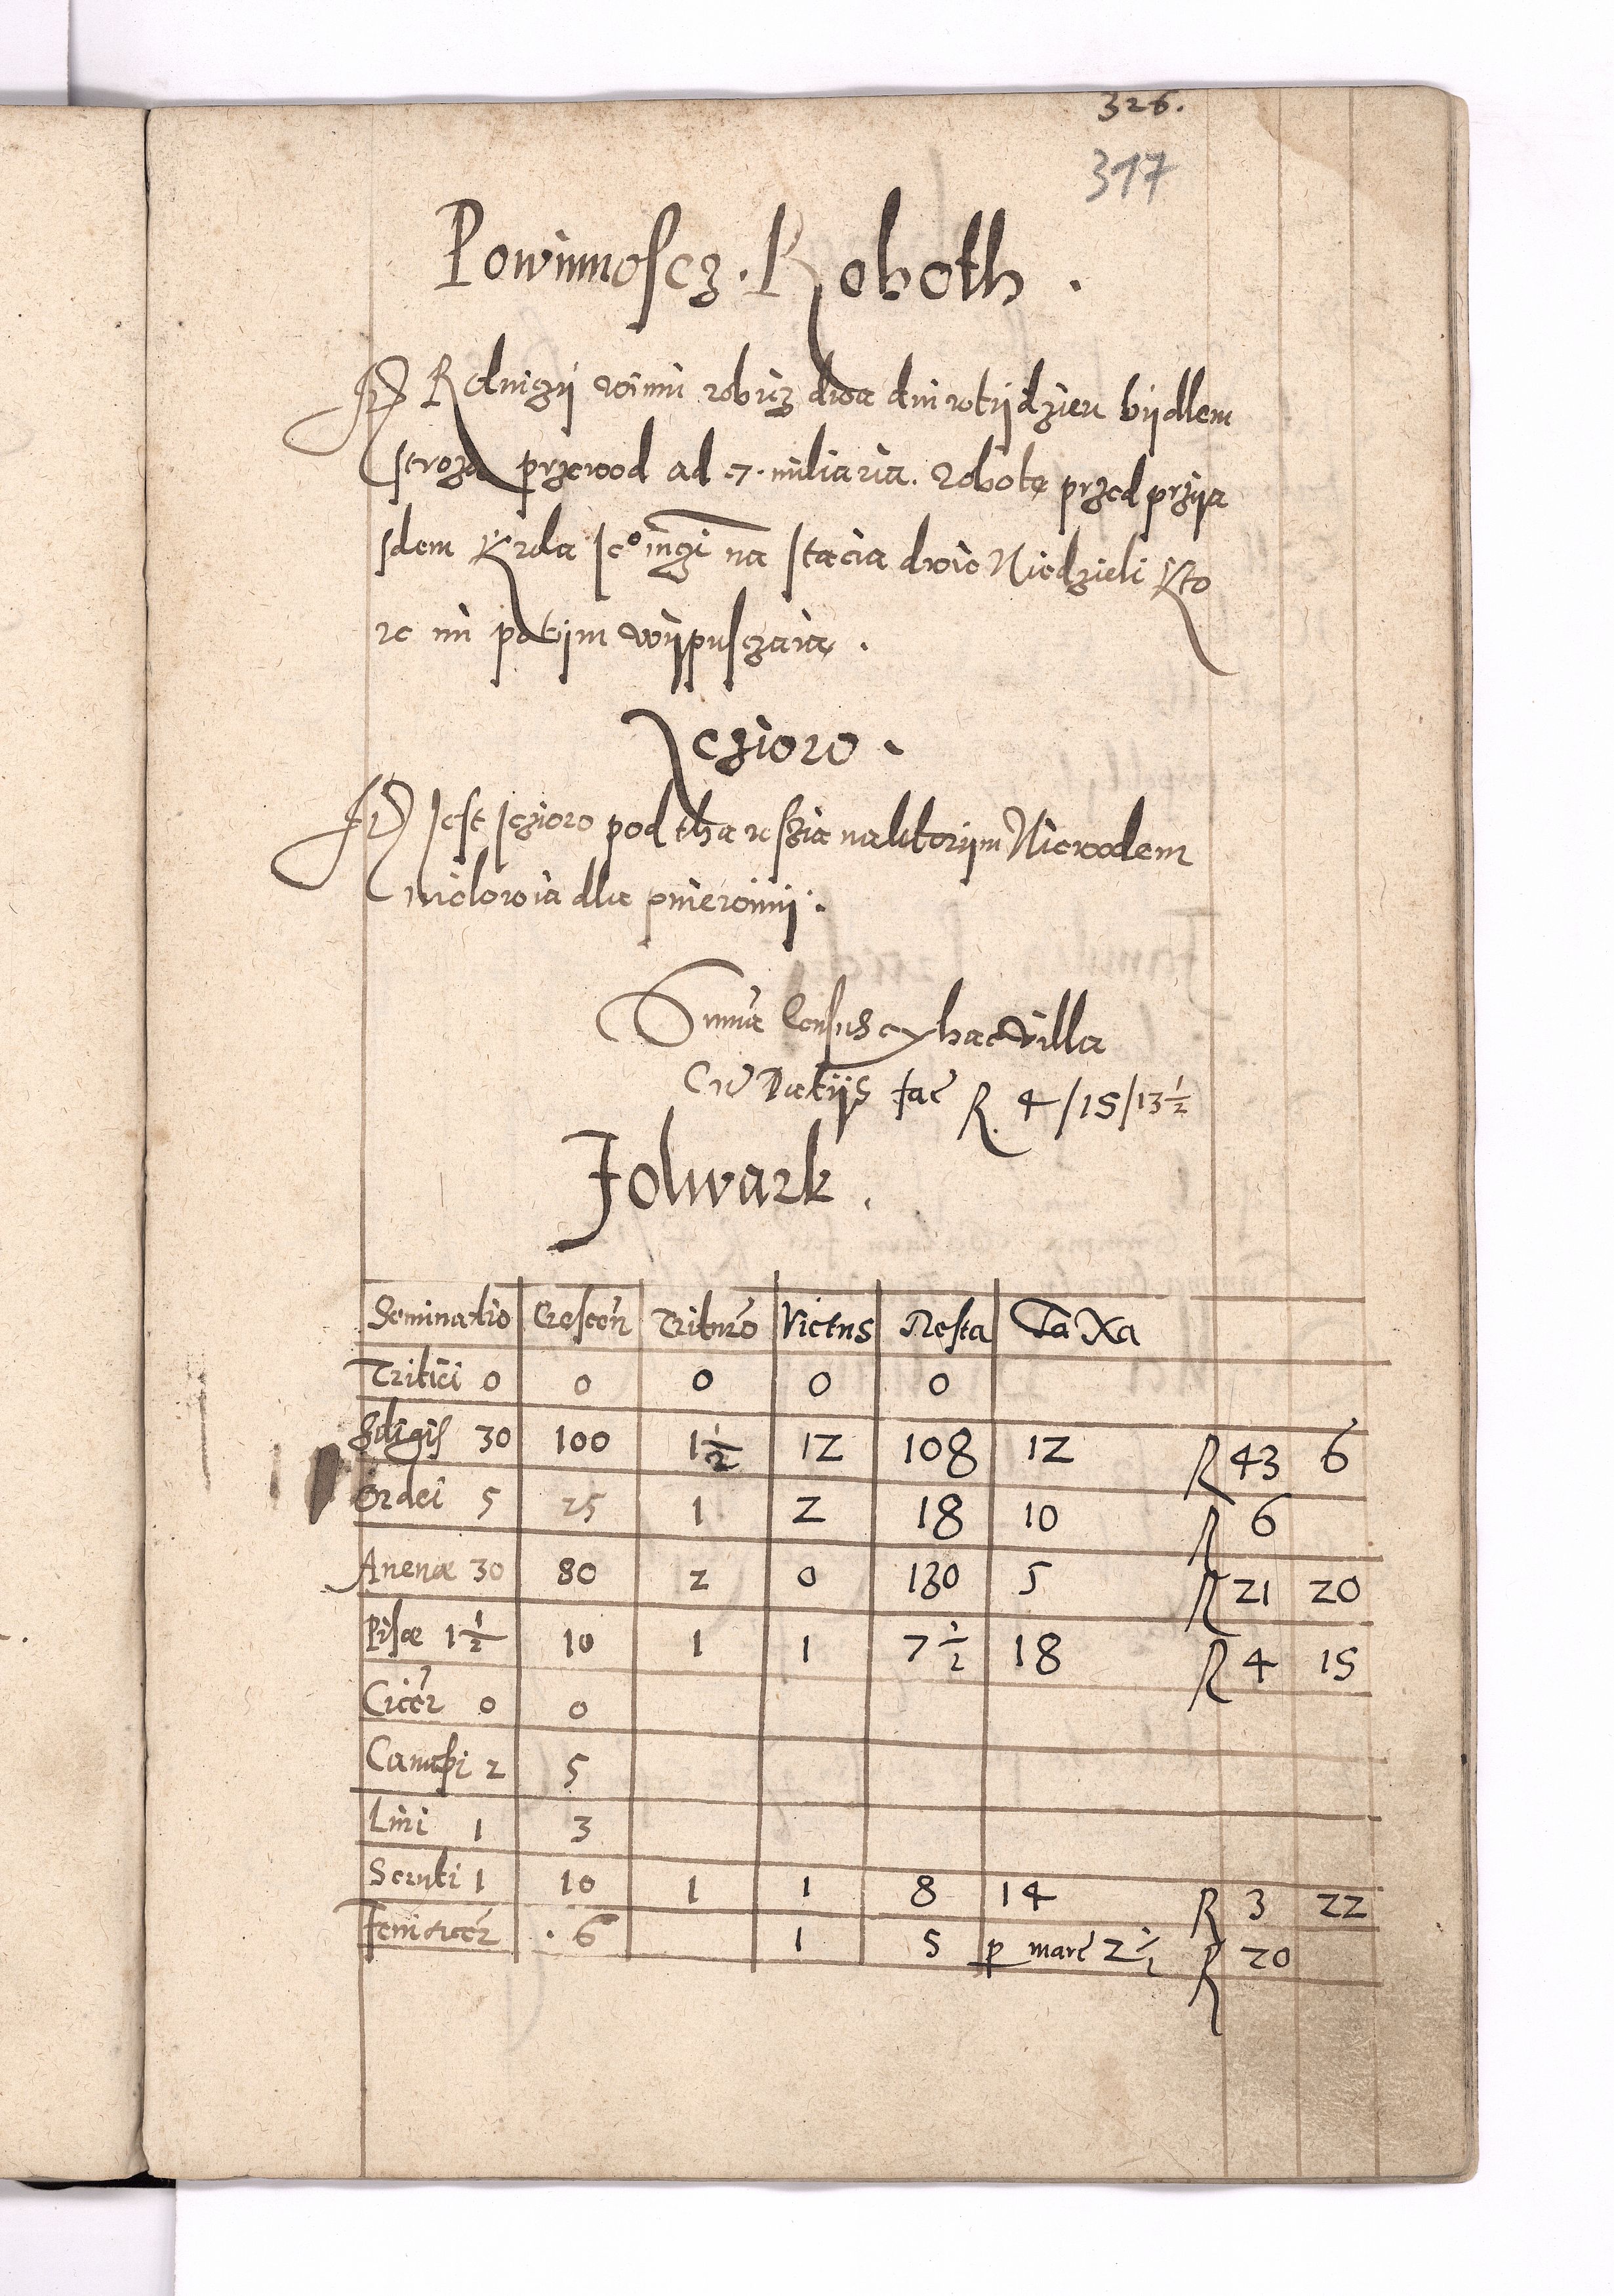 326.
317
Powinnoscz. Roboth.
It Rolniczÿ winni robicz dwa dni wtÿdzien bÿdlem
stroza przewod ad 7. miliaria. Robotę przed przÿa
sdem Krola Je° m̄gi na stacia dwie Niedzieli Kto
re im potÿm wÿpusczaią.
Jezioro.
It Jest Jezioro pod tha wszia naktorÿm Niewodem
mólowia dla pniewinÿ.
Suma̅ Census ex hac villa
Cu̅ Datÿs fac̅ R. 4/15/13 1/2
Folwark.
Seminatio Crescen̅ Triture̅ Victus Resta Taxa
Tritici 0 0 0 0 0
Siliginis 30 100 1 1/2 12 108 12 R 43 6
Ordei 5 25 1 2 18 10 R 6
Auenæ 30 80 2 0 130 5 R 21 20
Pisæ 1 1/2 10 1 1 7 1/2 18 R 4 15
Cicer̅ 0 0
Canapi 2 5
Lini 1 3
Seruti 1 10 1 1 8 14 R 3 22
Feni acer̅ . 6 1 5 p marc̅ 2 1/2 R 20